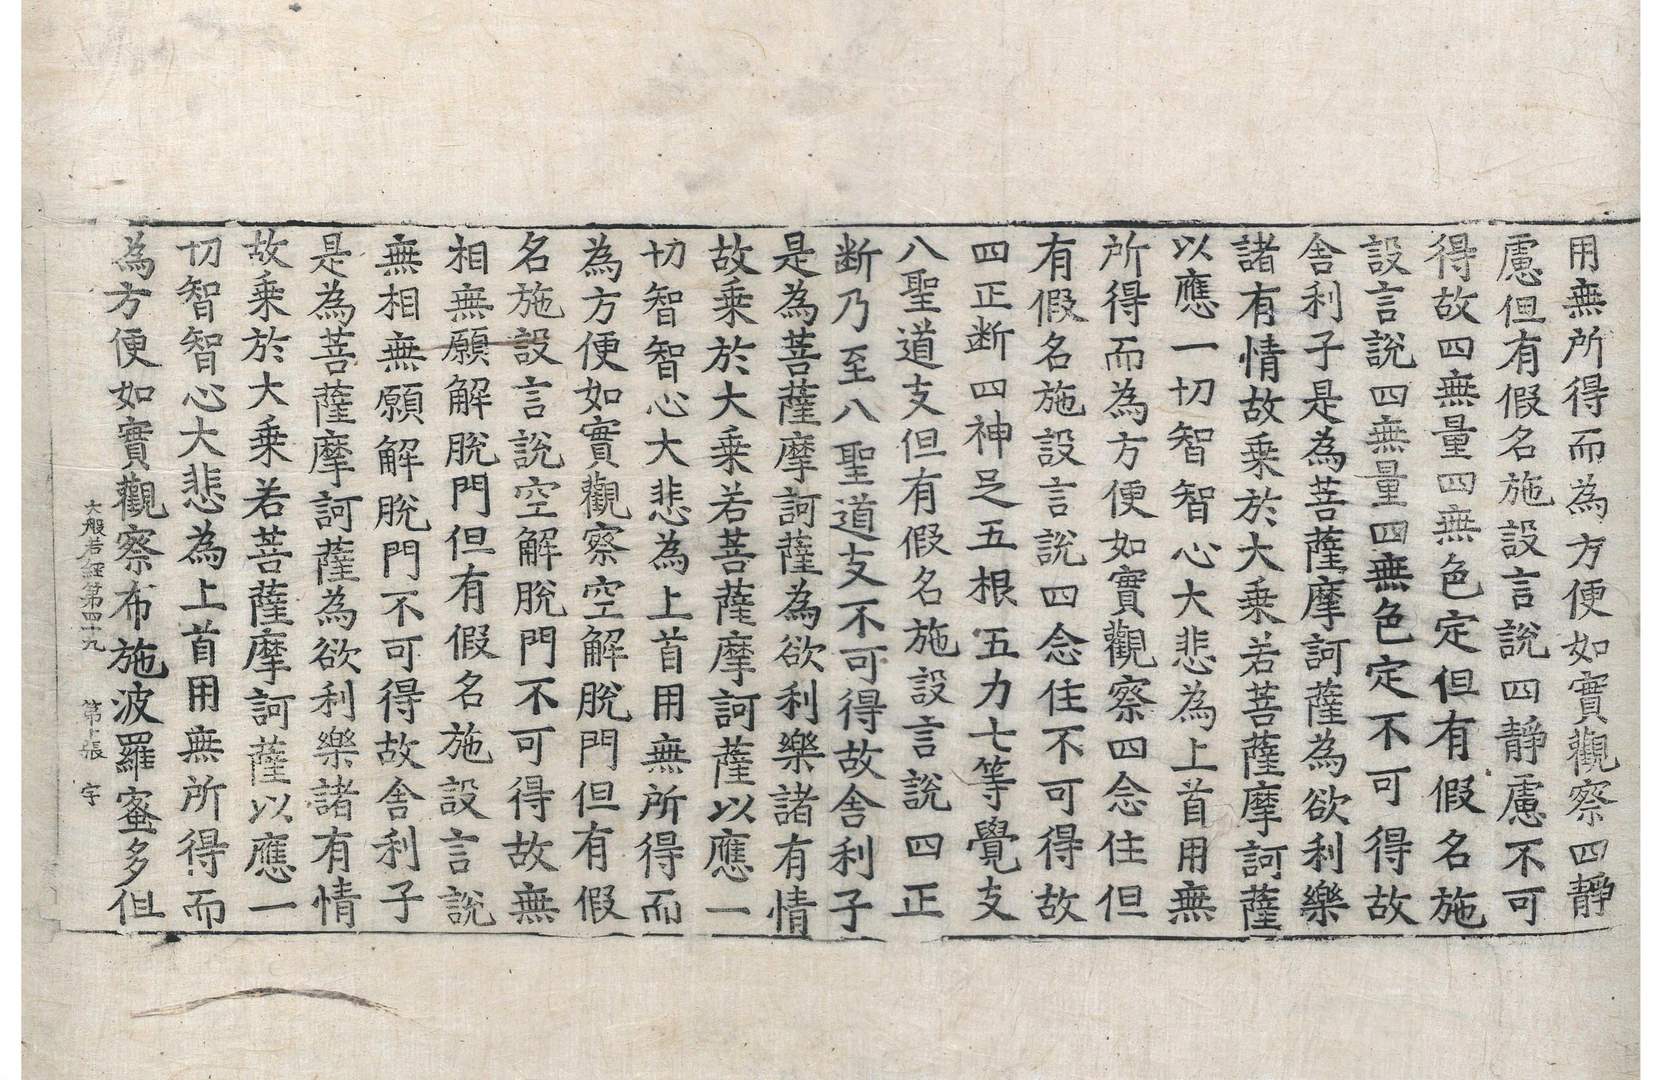 用無所得而為方便如實觀察四靜
慮但有假名施設言說四靜慮不可
得故四無量四無色定但有假名施
設言說四無量四無色定不可得故
舍利子是為菩薩摩訶薩為欲利樂
諸有情故乗於大乗若菩薩摩訶薩
以應一切智智心大悲為上首用無
所得而為方便如實觀察四念住但
有假名施設言說四念住不可得故
四正断四神足五根五力七等覺支
八聖道支但有假名施設言說四正
断乃至八聖道支不可得故舍利子
是為菩薩摩訶薩為欲利樂諸有情
故乗於大乗若菩薩摩訶薩以應一
切智智心大悲為上首用無所得而
為方便如實觀察空解脫門但有假
名施設言說空解脫門不可得故無
相無願解脫門但有假名施設言說
無相無願解脫門不可得故舍利子
是為菩薩摩訶薩為欲利樂諸有情
故乗於大乗若菩薩摩訶薩以應一
切智智心大悲為上首用無所得而
為方便如實觀察布施波羅蜜多但
大般若經第四十九 第十張 宇